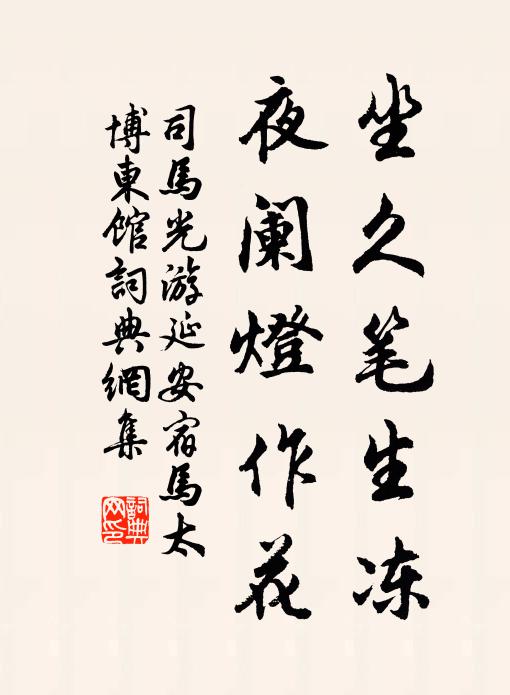 坐久笔生冻
夜阑燈作花
司馬光游延安宿馬太
博東館詞典網集
詞典
网印